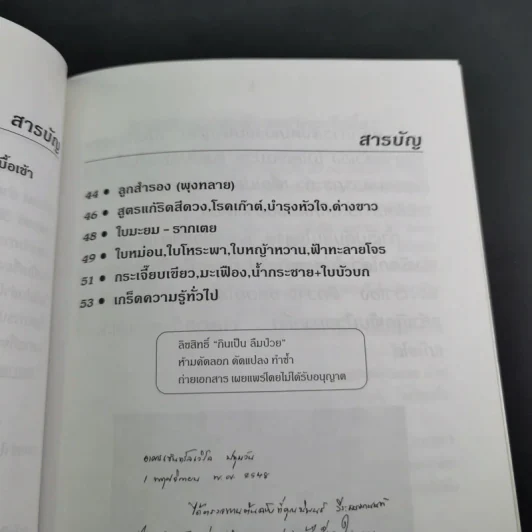 สารบัญ
มื้อเช้า
สารบัญ
44 • ลูกสำรอง (พุงทลาย)
46 • สูตรแก้ริดสีดวง,โรคเก๊าต์,บำรุงหัวใจ,ด่างขาว
48 • ใบมะยม - รากเตย
49 • ใบหม่อน,ใบโหระพา,ใบหญ้าหวาน,ฟ้าทะลายโจร
51 • กระเจี๊ยบเขียว,มะเฟือง,น้ำกระชาย+ใบบัวบก
53 • เกร็ดความรู้ทั่วไป
ลิขสิทธิ์ "กินเป็น ลืมป่วย"
ห้ามคัดลอก ดัดแปลง ทำซ้ำ
ถ่ายเอกสาร เผยแพร่โดยไม่ได้รับอนุญาต
ปทุมวัน
1 พฤศจิกายน พ.ศ. 2548